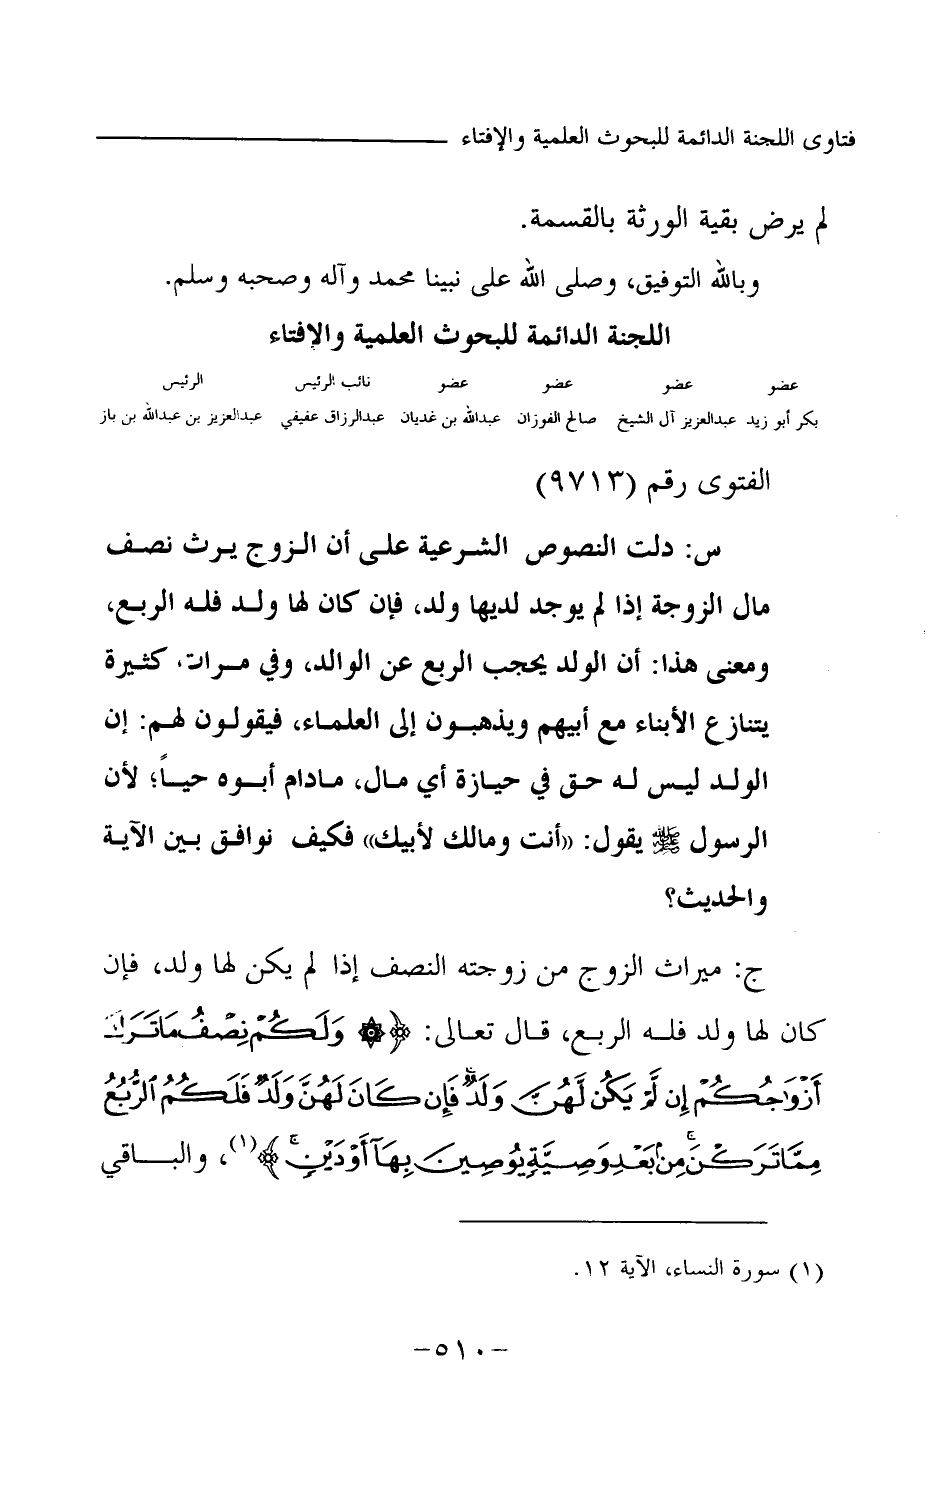 فتاوى اللجنة الدائمة للبحوث العلمية والإفتاء
لم يرض بقية الورثة بالقسمة.
وبالله التوفيق، وصلى الله على نبينا محمد وآله وصحبه وسلم.
اللجنة الدائمة للبحوث العلمية والإفتاء
عضو عضو عضو عضو نائب الرئيس الرئيس
بكر أبو زيد عبدالعزيز آل الشيخ صالح الفوزان عبدالله بن غديان عبدالرزاق عفيفي عبدالعزيز بن عبدالله بن باز
الفتوى رقم (٩٧١٣)
س: دلت النصوص الشرعية على أن الزوج يرث نصف
مال الزوجة إذا لم يوجد لديها ولد، فإن كان لها ولد فله الربع،
ومعنى هذا: أن الولد يحجب الربع عن الوالد، وفي مرات كثيرة
يتنازع الأبناء مع أبيهم ويذهبون إلى العلماء، فيقولون لهم: إن
الولد ليس له حق في حيازة أي مال، مادام أبوه حياً؛ لأن
الرسول ﷺ يقول: «أنت ومالك لأبيك» فكيف نوافق بين الآية
والحديث؟
ج: ميراث الزوج من زوجته النصف إذا لم يكن لها ولد، فإن
كان لها ولد فله الربع، قال تعالى: ﴿۞ وَلَكُمْ نِصْفُ مَا تَرَكَ
أَزْوَاجُكُمْ إِن لَّمْ يَكُن لَّهُنَّ وَلَدٌ ۚ فَإِن كَانَ لَهُنَّ وَلَدٌ فَلَكُمُ الرُّبُعُ
مِمَّا تَرَكْنَ ۚ مِن بَعْدِ وَصِيَّةٍ يُوصِينَ بِهَا أَوْ دَيْنٍ ۚ﴾(١)، والباقي
(١) سورة النساء، الآية ١٢.
-٥١٠-